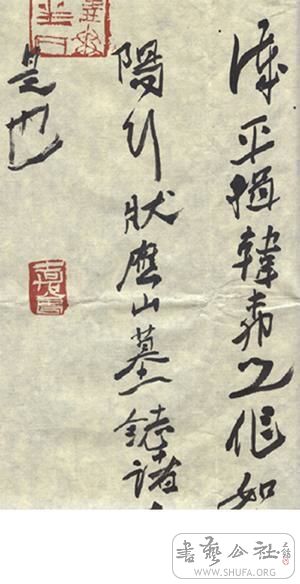 平揖韓弗之作如
陽行狀應山墓誌诸
是也
書藝公社
WWW.SHUFA.ORG